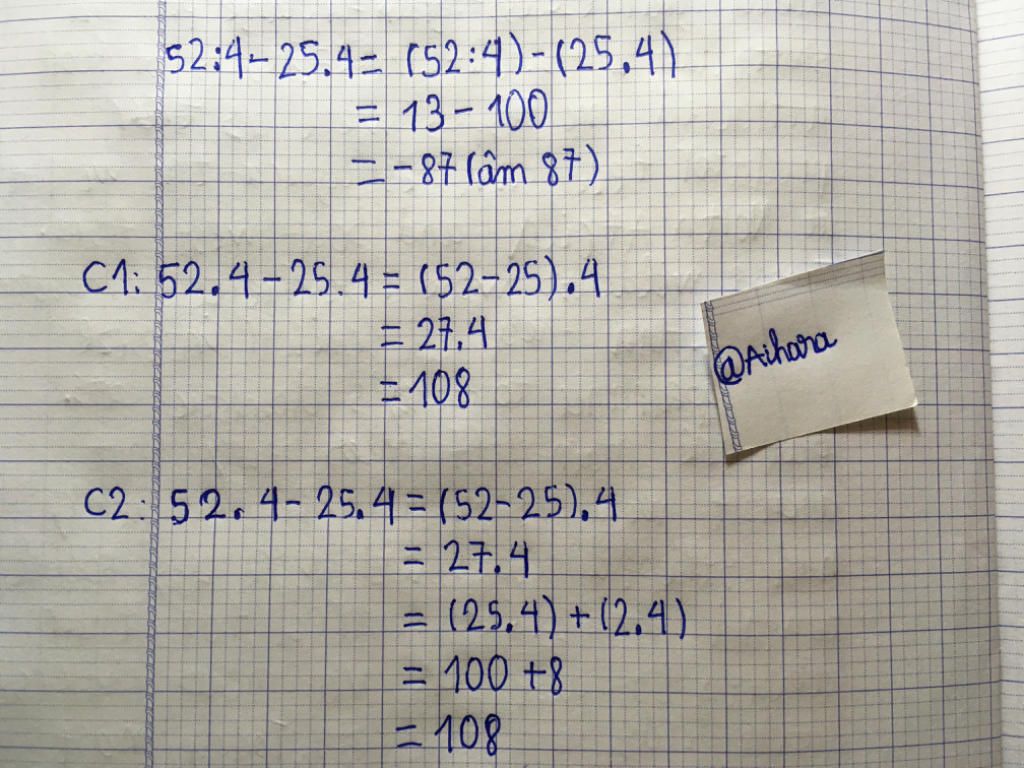 52:4-25.4= (52:4)-(25.4)
= 13-100
= -87 (âm 87)
C1: 52.4-25.4 = (52-25).4
= 27.4
= 108
@Aihara
C2: 52.4-25.4 = (52-25).4
= 27.4
= (25.4)+(2.4)
= 100+8
= 108